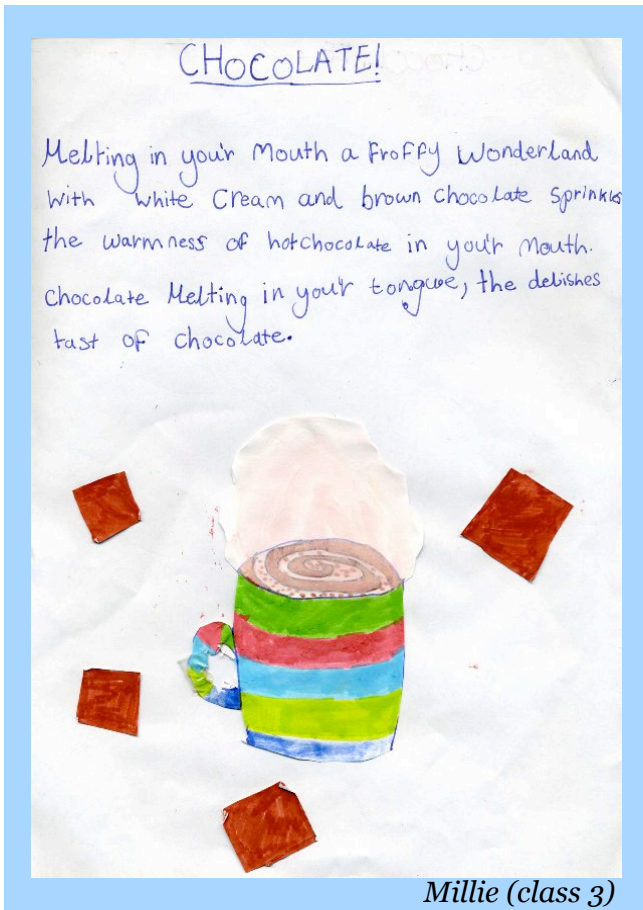 CHOCOLATE!
Melting in you'r Mouth a Froffy Wonderland
With white Cream and brown Chocolate Sprinkles
the warmness of hotchocolate in you'r Mouth.
Chocolate Melting in you'r tongue, the delishes
tast of chocolate.
Millie (class 3)